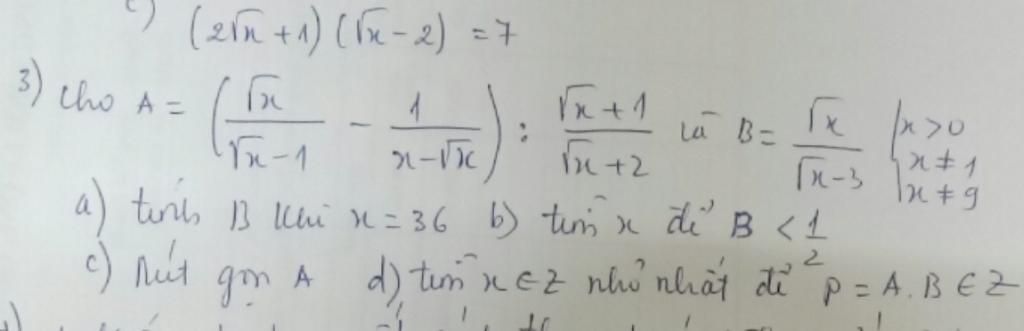 c) (2√x + 1)(√x - 2) = 7
3) Cho A = (√x/(√x - 1) - 1/(x - √x)) : (√x + 1)/(√x + 2) và B = √x/(√x - 3) { x > 0 x ≠ 1 x ≠ 9
a) tính B khi x = 36 b) tìm x để B < 1/2
c) Rút gọn A d) tìm x ∈ Z nhỏ nhất để P = A.B ∈ Z